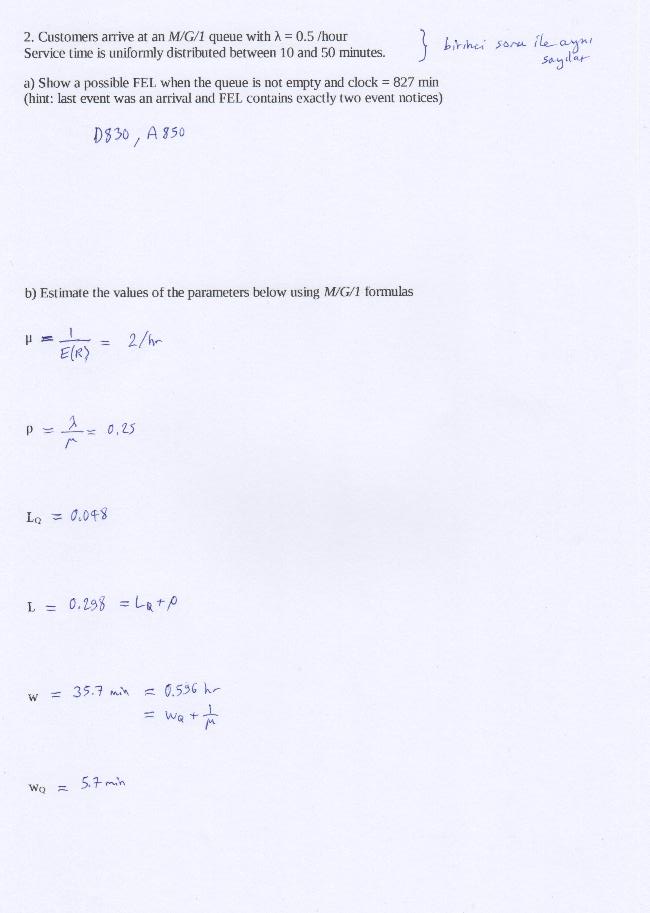 2. Customers arrive at an M/G/1 queue with λ = 0.5 /hour
Service time is uniformly distributed between 10 and 50 minutes.
} birinci soru ile aynı
sayılar
a) Show a possible FEL when the queue is not empty and clock = 827 min
(hint: last event was an arrival and FEL contains exactly two event notices)
D830, A850
b) Estimate the values of the parameters below using M/G/1 formulas
μ = 1/E(R) = 2/hr
ρ = λ/μ = 0,25
LQ = 0.048
L = 0.298 = LQ + ρ
w = 35.7 min = 0.596 hr
= wQ + 1/μ
wQ = 5.7 min